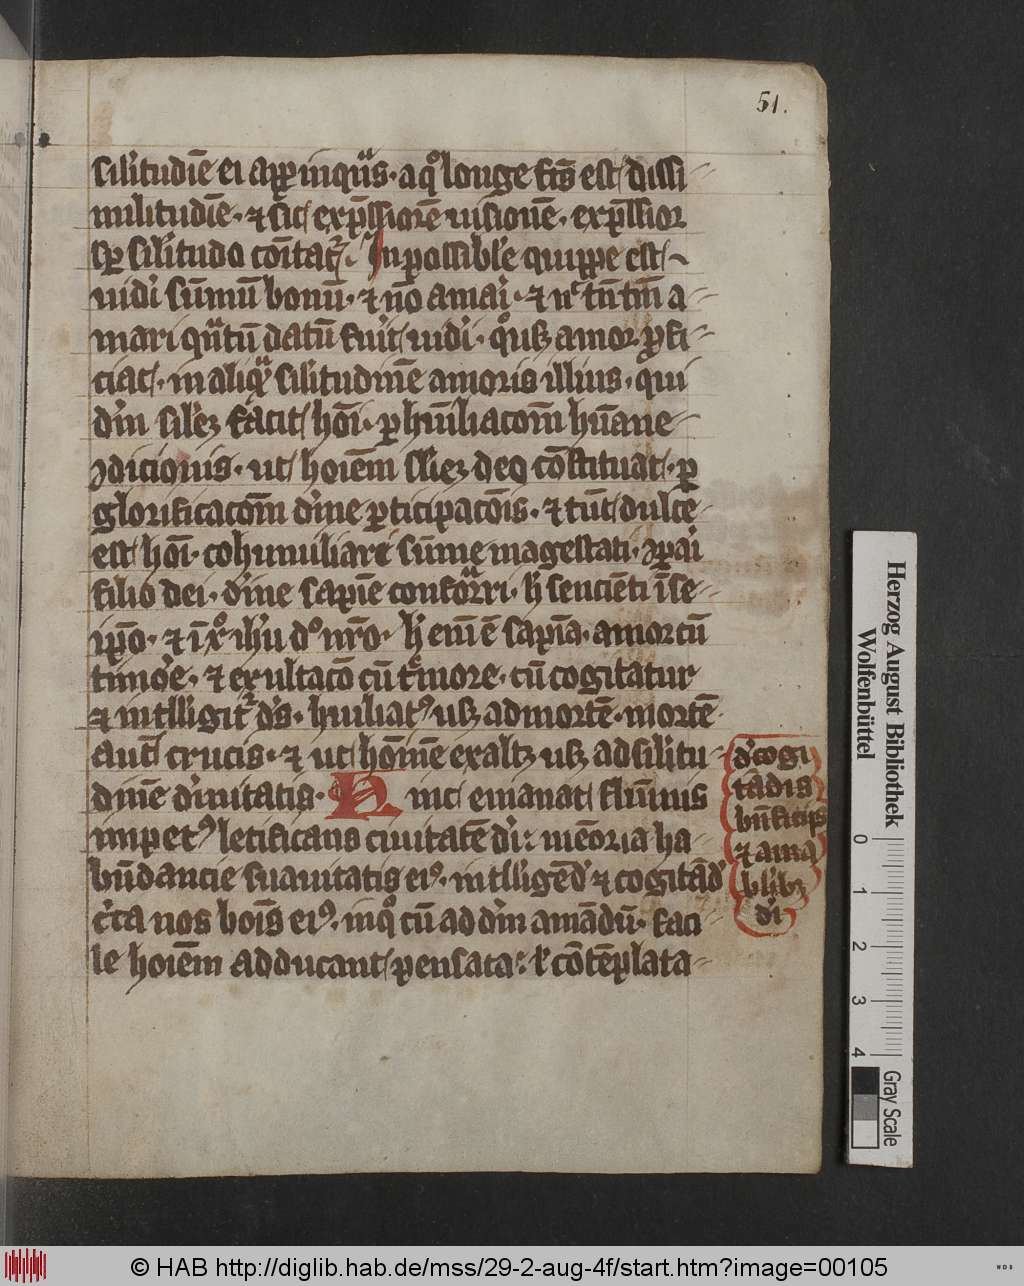 51.
silitudīe ei apꝓinqᷓs · a qͦ longe fc̄s est dissi⸗
militudīe · ⁊ sic exp̄ssiorē uisionē · exp̄ssior
sꝑ silitudo cōitat᷑ · Inpossibl'e quippe est
uidi sūmū bonū · ⁊ nō amai · ⁊ nͨ tn̄tm̄ a⸗
mari qᷓtū datū fuit uidi · qͦusꝫ amor ꝓfi⸗
ciat · in aliqᷓ silitudinē amoris illius · qui
dm̄ sil'eꝫ facit hōi · ꝑ hūiliacōm hūane⸗
ꝯdicionis · ut hoīem sil'eꝫ deo cōstituat · ꝑ
glorificacōm diīne ꝑticipacōis · ⁊ tūc dulcē⸗
est hōi · cohumiliari sūme magestati · ꝯpai
filio dei · diīne sapīe conforᷓri · h' sencienti ī se⸗
ip̄o · ⁊ ī xͦ ihū dͦ nr̄o · h' eīm ē sapīa · amor cū
timoe · ⁊ exultacō cū tͤmore · cū cogitatur
⁊ intlligit᷑ d's · huiliatꝰ usꝫ ad mortē · mortē
aut̄ crucis · ⁊ ut hōmē exaltꝫ usꝫ ad silitu⸗
dinē diuitatis · Hinc emanat flūinis
impetꝰ letificans ciuitatē di : mēoria ha
būdancie suauitatis eiꝰ · intlligēd' ⁊ cogitād'
c'ca nos bōis eiꝰ · in qͦ cū ad dm̄ amādū · faci⸗
le hoīem adducant pensata : l' cōtēplata⸗
d' cogi
tādis
bn̄ficijs
⁊ ama
blibꝫ
di
Herzog August Bibliothek
Wolfenbüttel
0 1 2 3 4
Gray Scale
© HAB http://diglib.hab.de/mss/29-2-aug-4f/start.htm?image=00105
WDB